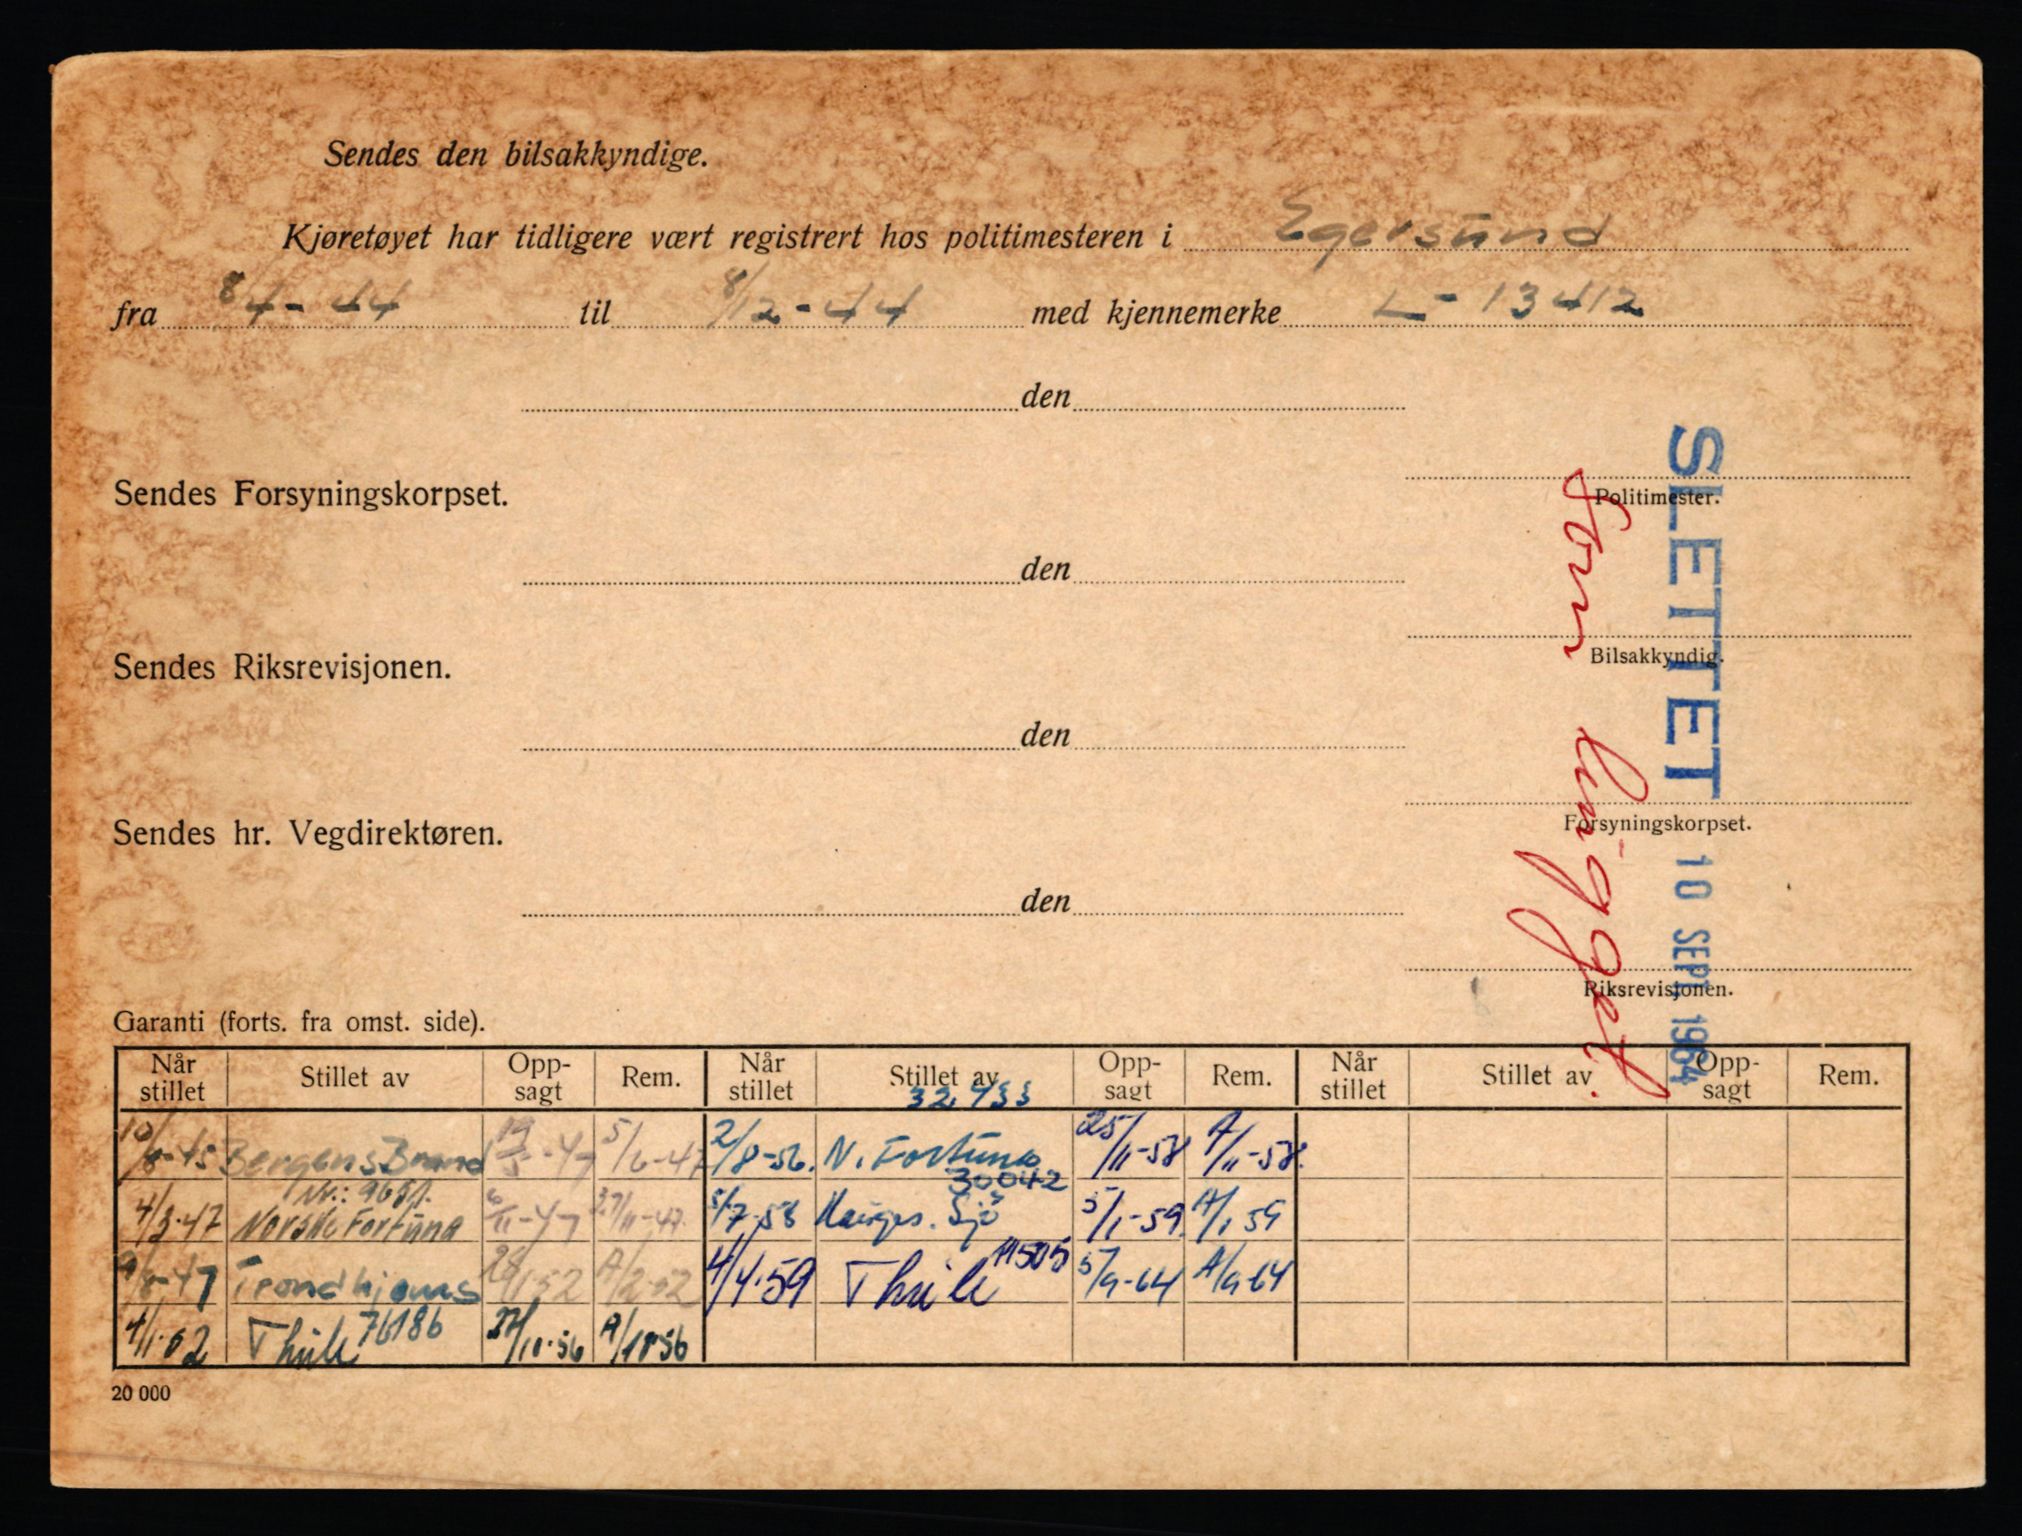 Sendes den bilsakkyndige.
Kjøretøyet har tidligere vært registrert hos politimesteren i Egersund
fra 8/4-44 til 8/12-44 med kjennemerke L-13412
den
Politimester.
Sendes Forsyningskorpset.
den
Bilsakkyndig.
Sendes Riksrevisjonen.
den
Forsyningskorpset.
Sendes hr. Vegdirektøren.
den
Riksrevisjonen.
SLETTET 10 SEPT. 1964
Som hugget.
Garanti (forts. fra omst. side).
Når stillet Stillet av Opp-sagt Rem. Når stillet Stillet av Opp-sagt Rem. Når stillet Stillet av Opp-sagt Rem.
10/8-45 Bergens Brand 19/5-47 5/6-47 2/8-56. N. Fortuna 25/11-58 A/11-58.
4/3-47 Norske Fortuna 6/11-47 5/7-58 Hauges. Sjø 30042 5/1-59. A/1 59
Trondhjems 28/1-52 A/2-52 4/4-59 Thule 11505 5/9-64 A/9-64
4/1-52 Thule 76186 27/10-56 A/10-56
20 000